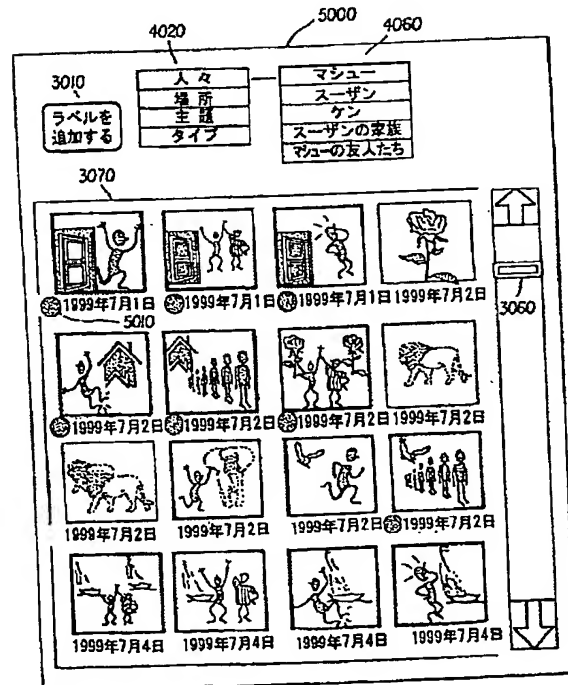 5000
4020
4060
3010
ラベルを
追加する
人々
場所
主題
タイプ
マシュー
スーザン
ケン
スーザンの家族
マシューの友人たち
3070
1999年7月1日 1999年7月1日 1999年7月1日 1999年7月2日
5010
3060
1999年7月2日 1999年7月2日 1999年7月2日 1999年7月2日
1999年7月2日 1999年7月2日 1999年7月2日 1999年7月2日
1999年7月4日 1999年7月4日 1999年7月4日 1999年7月4日